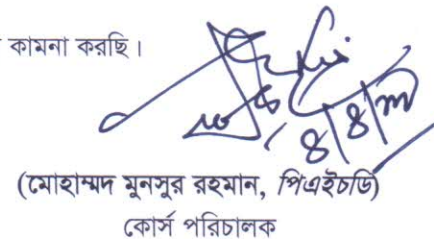 কামনা করছি।
৪/৪/
(মোহাম্মদ মুনসুর রহমান, পিএইচডি)
কোর্স পরিচালক